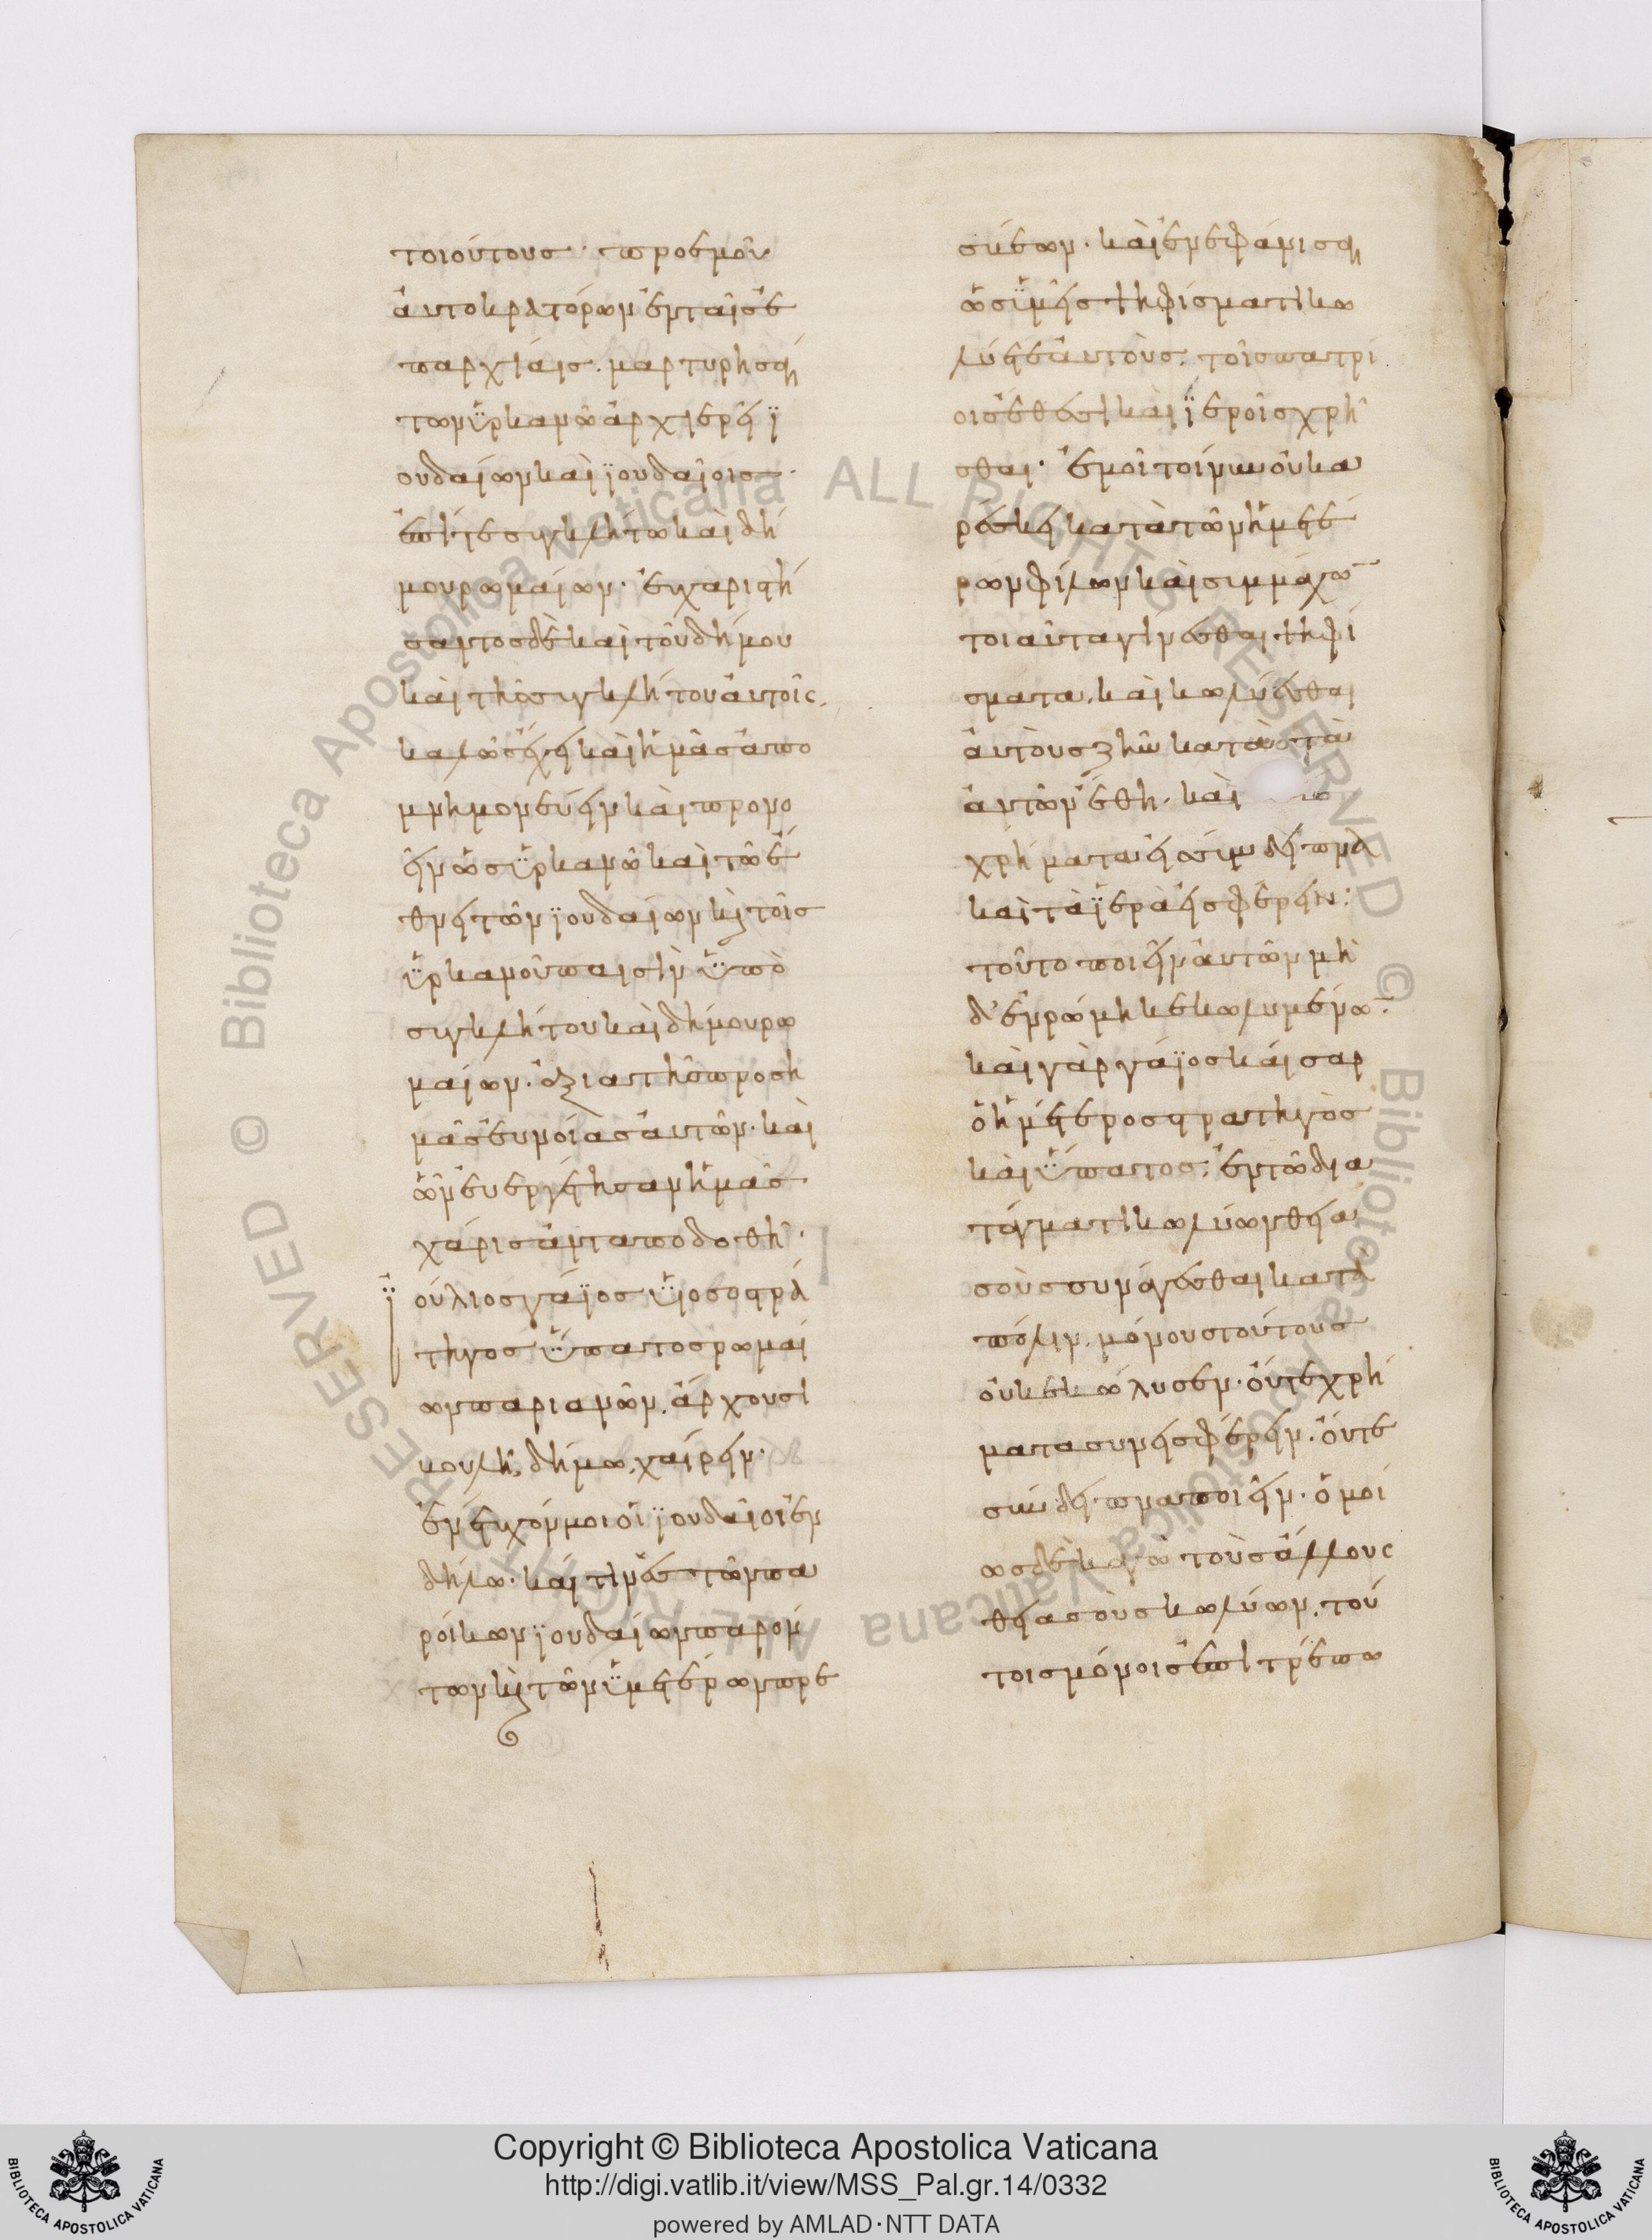 τοιούτους· πρὸ ἐμοῦ
ἀυτοκρατόρων ἐν ταῖς ἐ
παρχίαις. μαρτυρῆσαι
τῶν ὑρκανῶ ἀρχιερεῖ ϊ
ουδαίων καὶ ϊουδαίοις·
ἐπί τε συγκλήτω καὶ δή
μου ρωμαίων· ἐυχαριστή
σαντος δὲ καὶ τοῦ δήμου
καὶ τῆς συγκλήτου ἀυτοῖς,
καλῶς ἔχει καὶ ἡμᾶς ἀπο
μνημονεύειν καὶ προνο
εῖν ὡς ὑρκανῶ καὶ τῶ ἔ
θνει τῶν ϊουδαίων κ(αὶ) τοῖς
ὑρκανοῦ παισὶν ὑπὸ
συγκλήτου καὶ δήμου ρω
μαίων. ἀξία τῆς πρὸς ἡ
μᾶς ἐυνοίας ἀυτῶν· καὶ
ὧν ἐυεργέτησαν ἡμᾶς
χάρις ἀνταποδοθῆ·
ϊούλιος γάϊος ὑϊοσο στρά
τηγος ὕπατος ρωμαί
ων παριανῶν. ἄρχουσι
βουλῆ, δήμω, χαίρειν·
ἐνέτυχόν μοι οἱ ϊουδαῖοι ἐν
δήλω· καί τινες τῶν πα
ροίκων ϊουδαίων παρόν
των κ(αὶ) τῶν ὑμετέρων πρε
σβέων. καὶ ἐνεφάνισαν
ὡς ὑμεῖς ψηφίσματι κω
λύετε ἀυτοὺς, τοῖς πατρί
οις ἔθεσι καὶ ϊεροῖς χρῆ
σθαι· ἐμοὶ τοίνυν οὐκ ἀ
ρέσκει κατὰ τῶν ἡμετέ
ρων φίλων καὶ συμμάχω(ν)
τοιαῦτα γίνεσθαι ψηφί
σματα, καὶ κωλύεσθαι
ἀυτοὺς ζῆν κατὰ τὰ
ἀυτῶν ἔθη, καὶ
χρήματα εἰς σύνδειπνα
καὶ τὰ ϊερὰ εἰσφέρειν:
τοῦτο ποιεῖν ἀυτῶν μὴ
δ' ἐν ρώμη κεκωλυμένω(ν).
καὶ γὰρ γάϊος καίσαρ
ὁ ἡμέτερος στρατηγὸς
καὶ ὕπατος, ἐν τῶ δια
τάγματι κωλύων θιά
σους συνάγεσθαι κατὰ
πόλιν, μόνους τούτους
οὐκ ἐκώλυσεν· οὔτε χρή
ματα συνεισφέρειν, οὔτε
σύνδειπνα ποιεῖν· ὁμοί
ως δὲ κἀγὼ τοὺς ἄλλους
θιάσους κωλύων, τού
τοις μόνοις ἐπιτρέπω
Copyright © Biblioteca Apostolica Vaticana
http://digi.vatlib.it/view/MSS_Pal.gr.14/0332
powered by AMLAD·NTT DATA